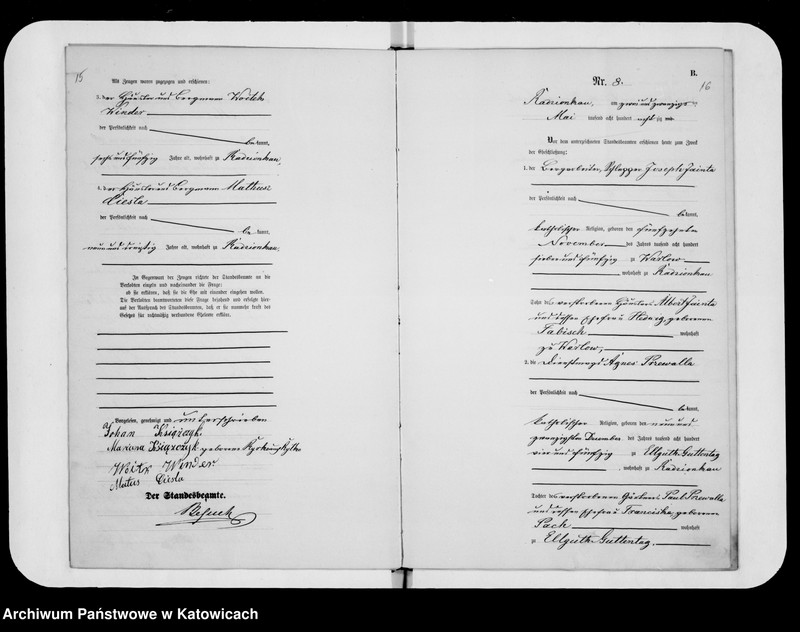 15
Mit Zeugen waren zugezogen und erschienen:
3. der Häusler und Bergmann Woitek
Winder
der Persönlichkeit nach
bekannt,
sechsundfünfzig Jahre alt, wohnhaft zu Radzionkau
4. der Häusler und Bergmann Matheus
Ciesla
der Persönlichkeit nach
bekannt,
neun und dreißig Jahre alt, wohnhaft zu Radzionkau.
In Gegenwart der Zeugen richtete der Standesbeamte an die
Verlobten einzeln und nacheinander die Frage:
ob sie erklären, daß sie die Ehe mit einander eingehen wollen.
Die Verlobten beantworteten diese Frage bejahend und erfolgte hier-
auf der Ausspruch des Standesbeamten, daß er sie nunmehr kraft des
Gesetzes für rechtmäßig verbundene Eheleute erkläre.
Vorgelesen, genehmigt und unterschrieben
Johan Książczyk
Marianna Książczyk geborene
Woitk Winder
Mateus Ciesla
Der Standesbeamte.
B.
16
Nr. 8.
Radzionkau, am zwei und zwanzigsten
Mai tausend acht hundert achtzig
Vor dem unterzeichneten Standesbeamten erschienen heute zum Zweck
der Eheschließung:
1. der Bergarbeiter, Schlepper Joseph Jainta
der Persönlichkeit nach
bekannt,
katholischer Religion, geboren den fünfzehnten
November des Jahres tausend acht hundert
sieben und fünfzig zu Warlow
, wohnhaft zu Radzionkau
Sohn des verstorbenen Häusler Albert Jainta
und dessen Ehefrau Hedwig geborenen
Tabisch wohnhaft
zu Warlow,
2. die Dienstmagd Agnes Przewalla
der Persönlichkeit nach
bekannt,
katholischer Religion, geboren den neun und
zwanzigsten Dezember des Jahres tausend acht hundert
vier und fünfzig zu Ellguth Guttentag
, wohnhaft zu Radzionkau
Tochter des verstorbenen Gärtner Paul Przewalla
und dessen Ehefrau Franciska, geborenen
Pach wohnhaft
zu Ellguth-Guttentag.
Archiwum Państwowe w Katowicach